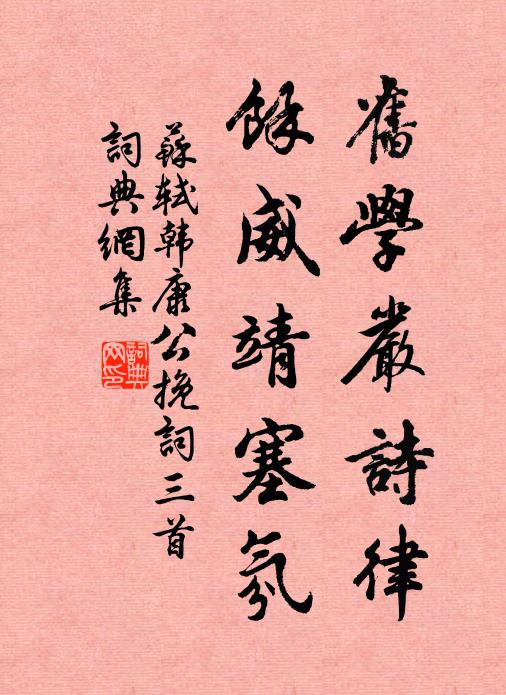 舊學嚴詩律
餘威靖塞氛
蘇軾韩康公挽詞三首
詞典網集
詞典网印